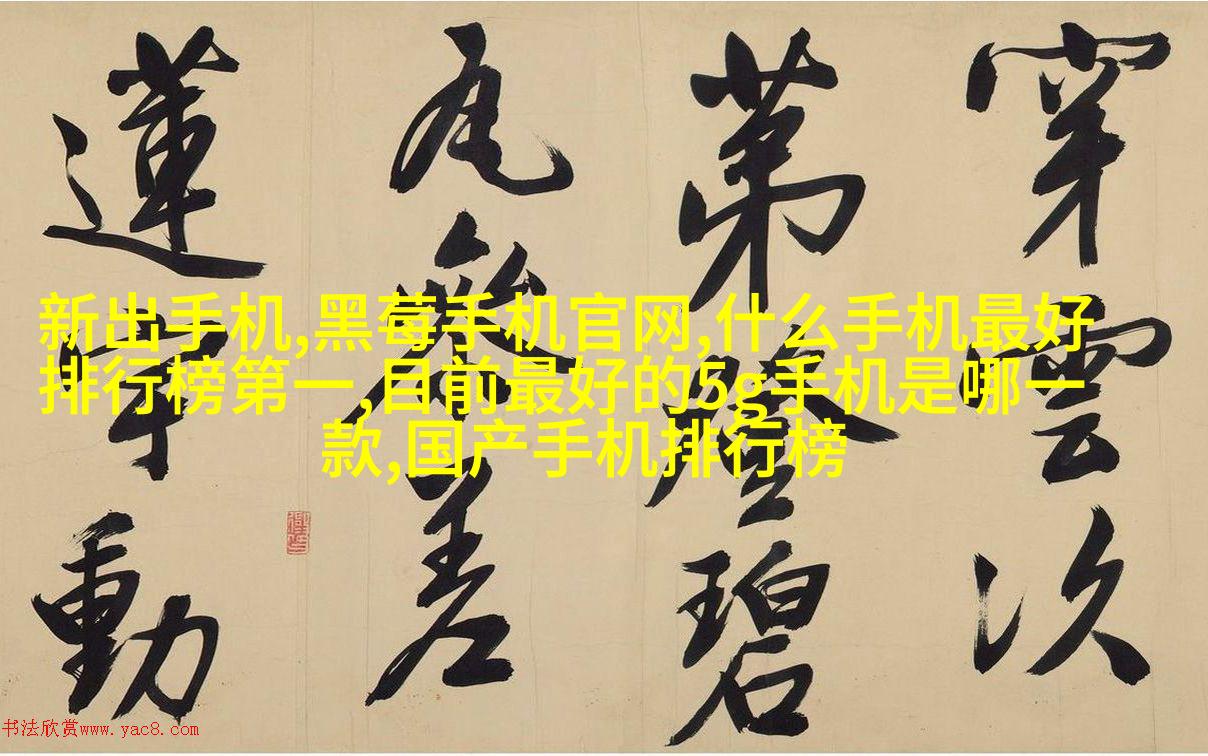 穿雲次
第磴碧
瓦參差
蓮宇動
新出手机,黑莓手机官网,什么手机最好
排行榜第一,目前最好的5g手机是哪一
款,国产手机排行榜
书法欣赏www.yac8.com